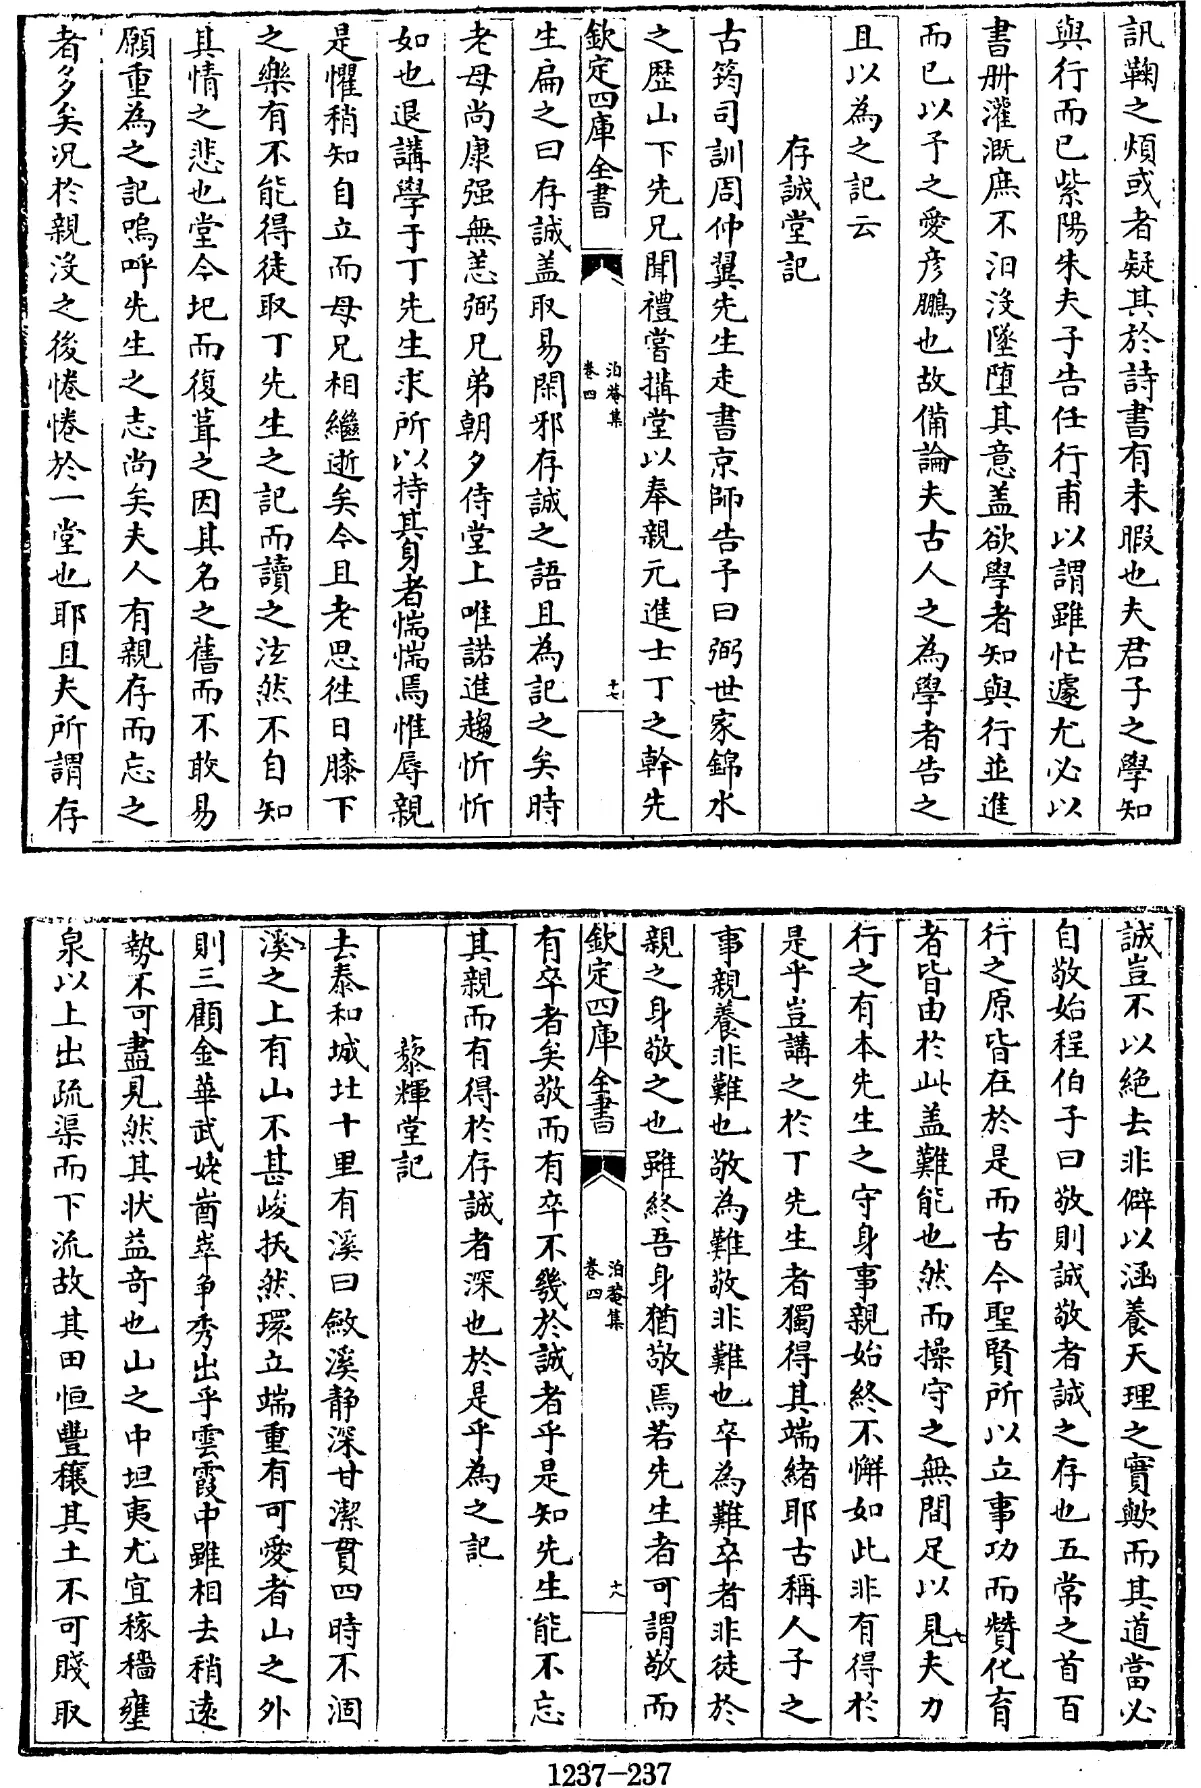 訊鞠之煩或者疑其於詩書有未暇也夫君子之學知
與行而已紫陽朱夫子告任行甫以謂雖忙遽尤必以
書册灌溉庶不汩没墜墮其意盖欲學者知與行並進
而已以予之愛彦鵬也故備論夫古人之為學者告之
且以為之記云
存誠堂記
古筠司訓周仲翼先生走書京師告予曰弼世家錦水
之歴山下先兄聞禮嘗搆堂以奉親元進士丁之幹先
欽定四庫全書
泊菴集
卷四
十七
生扁之曰存誠盖取易閑邪存誠之語且為記之矣時
老母尚康强無恙弼兄弟朝夕侍堂上唯諾進趨忻忻
如也退講學于丁先生求所以持其身者惴惴焉惟辱親
是懼稍知自立而母兄相繼逝矣今且老思徃日膝下
之樂有不能得徒取丁先生之記而讀之泫然不自知
其情之悲也堂今圯而復葺之因其名之舊而不敢易
願重為之記嗚呼先生之志尚矣夫人有親存而忘之
者多矣况於親沒之後惓惓於一堂也耶且夫所謂存
誠豈不以絶去非僻以涵養天理之實歟而其道當必
自敬始程伯子曰敬則誠敬者誠之存也五常之首百
行之原皆在於是而古今聖賢所以立事功而贊化育
者皆由於此盖難能也然而操守之無間足以見夫力
行之有本先生之守身事親始終不懈如此非有得於
是乎豈講之於丁先生者獨得其端緒耶古稱人子之
事親養非難也敬為難敬非難也卒為難卒者非徒於
親之身敬之也雖終吾身猶敬焉若先生者可謂敬而
欽定四庫全書
泊菴集
卷四
十八
有卒者矣敬而有卒不幾於誠者乎是知先生能不忘
其親而有得於存誠者深也於是乎為之記
藜輝堂記
去泰和城壮十里有溪曰斂溪静深甘潔貫四時不涸
溪之上有山不甚峻㧞然環立端重有可愛者山之外
則三顧金華武姥崷崒争秀出乎雲霞中雖相去稍逺
勢不可盡見然其状益奇也山之中坦夷尤宜稼穡壅
泉以上出疏渠而下流故其田恒豐穰其土不可賤取
1237-237